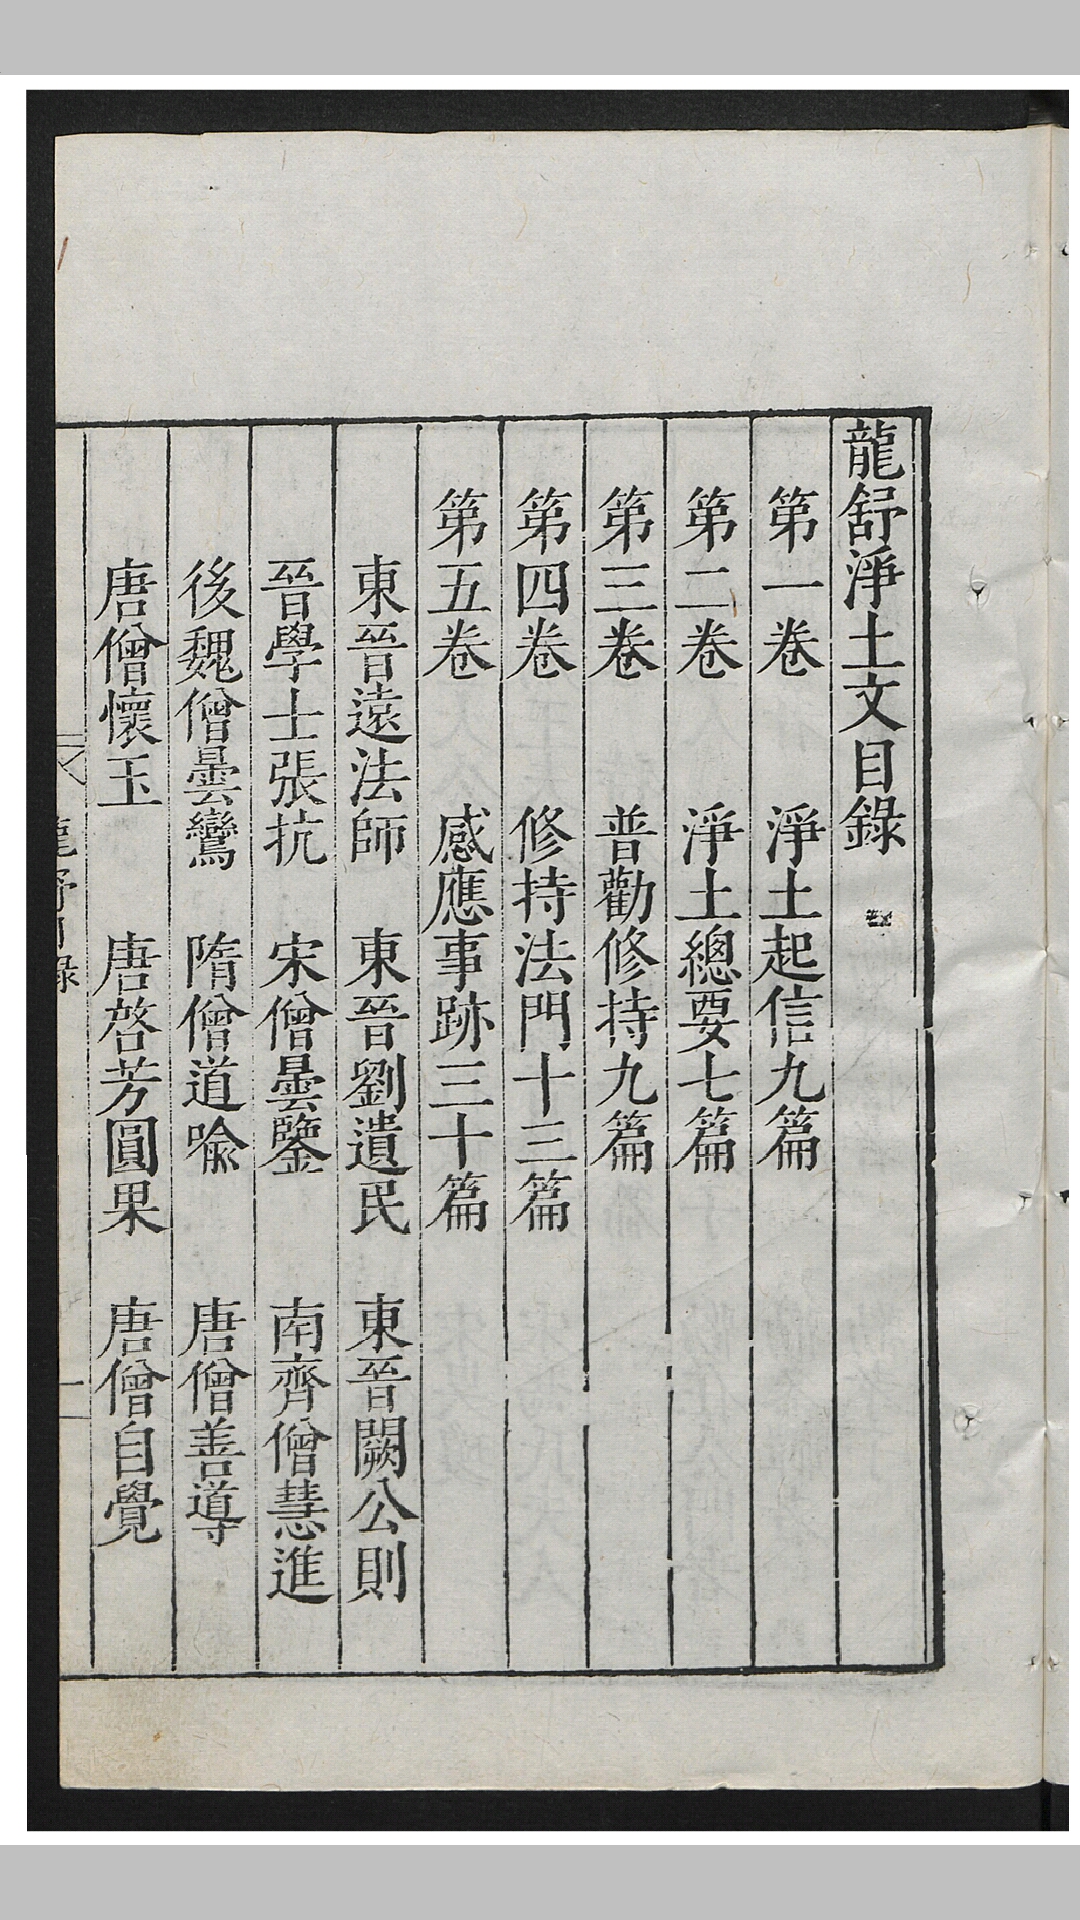 龍舒淨土文目錄
第一卷　淨土起信九篇
第二卷　淨土總要七篇
第三卷　普勸修持九篇
第四卷　修持法門十三篇
第五卷　感應事跡三十篇
東晉遠法師　東晉劉遺民　東晉闕公則
晉學士張抗　宋僧曇鑒　南齊僧慧進
後魏僧曇鸞　隋僧道喻　唐僧善導
唐僧懷玉　唐啓芳圓果　唐僧自覺
龍舒目錄　一